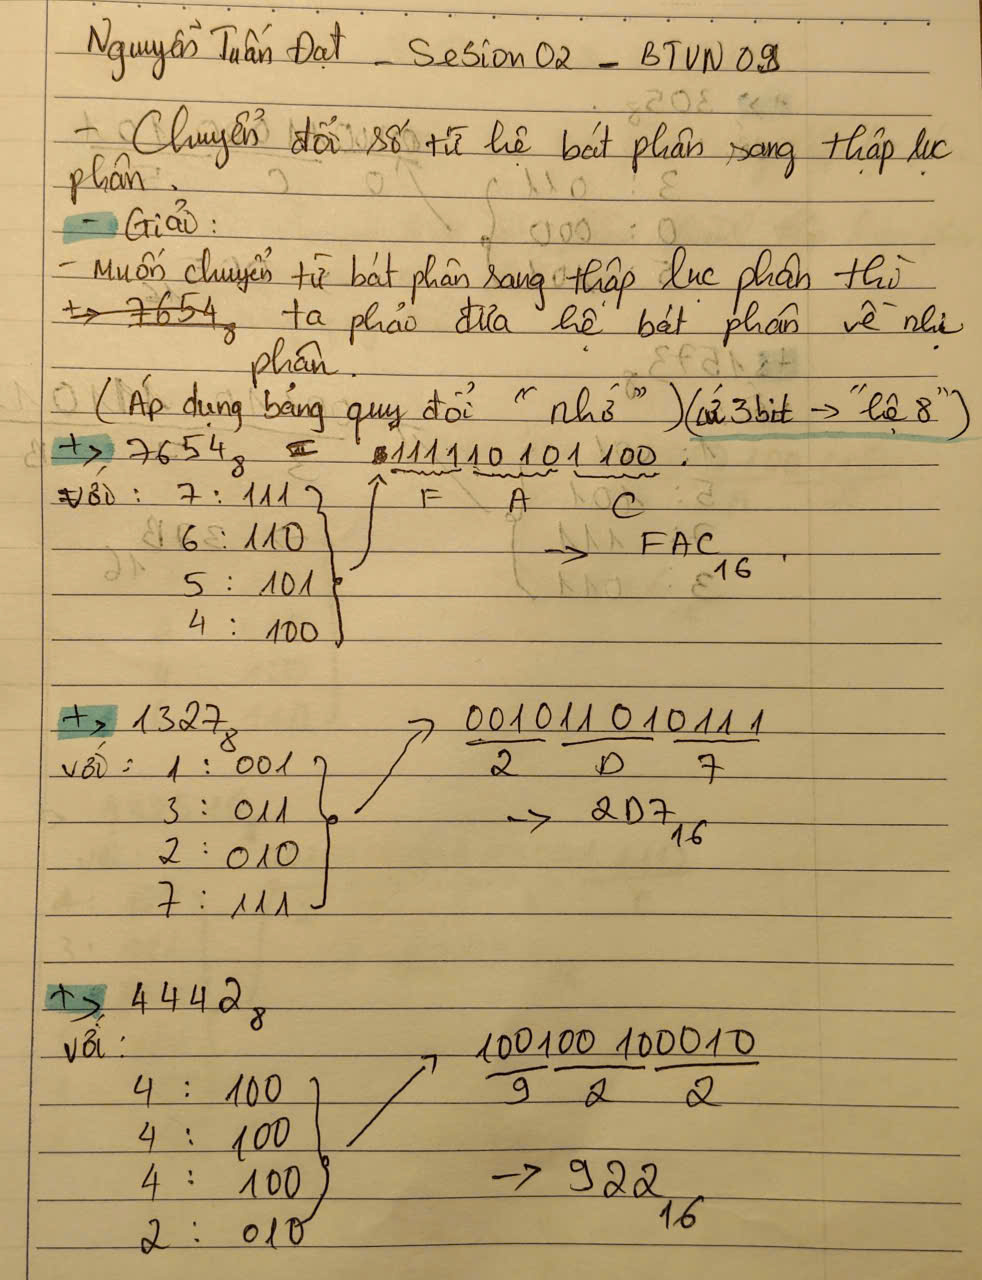 Nguyễn Tuấn Đạt - Sesion 02 - BTVN 09
- Chuyển đổi số từ hệ bát phân sang thập lục
phân.
- Giải:
- Muốn chuyển từ bát phân sang thập lục phân thì
+> 7654₈ ta phải đưa hệ bát phân về nhị
phân.
(Áp dụng bảng quy đổi "nhớ") (cứ 3bit → "hệ 8")
+> 7654₈ = 111110101100.
với: 7 : 111 F A C
6 : 110 → FAC₁₆.
5 : 101
4 : 100
+> 1327₈ 001011010111
với: 1 : 001 2 D 7
3 : 011 → 2D7₁₆
2 : 010
7 : 111
+> 4442₈
với: 100100100010
4 : 100 9 2 2
4 : 100
4 : 100 → 922₁₆
2 : 010